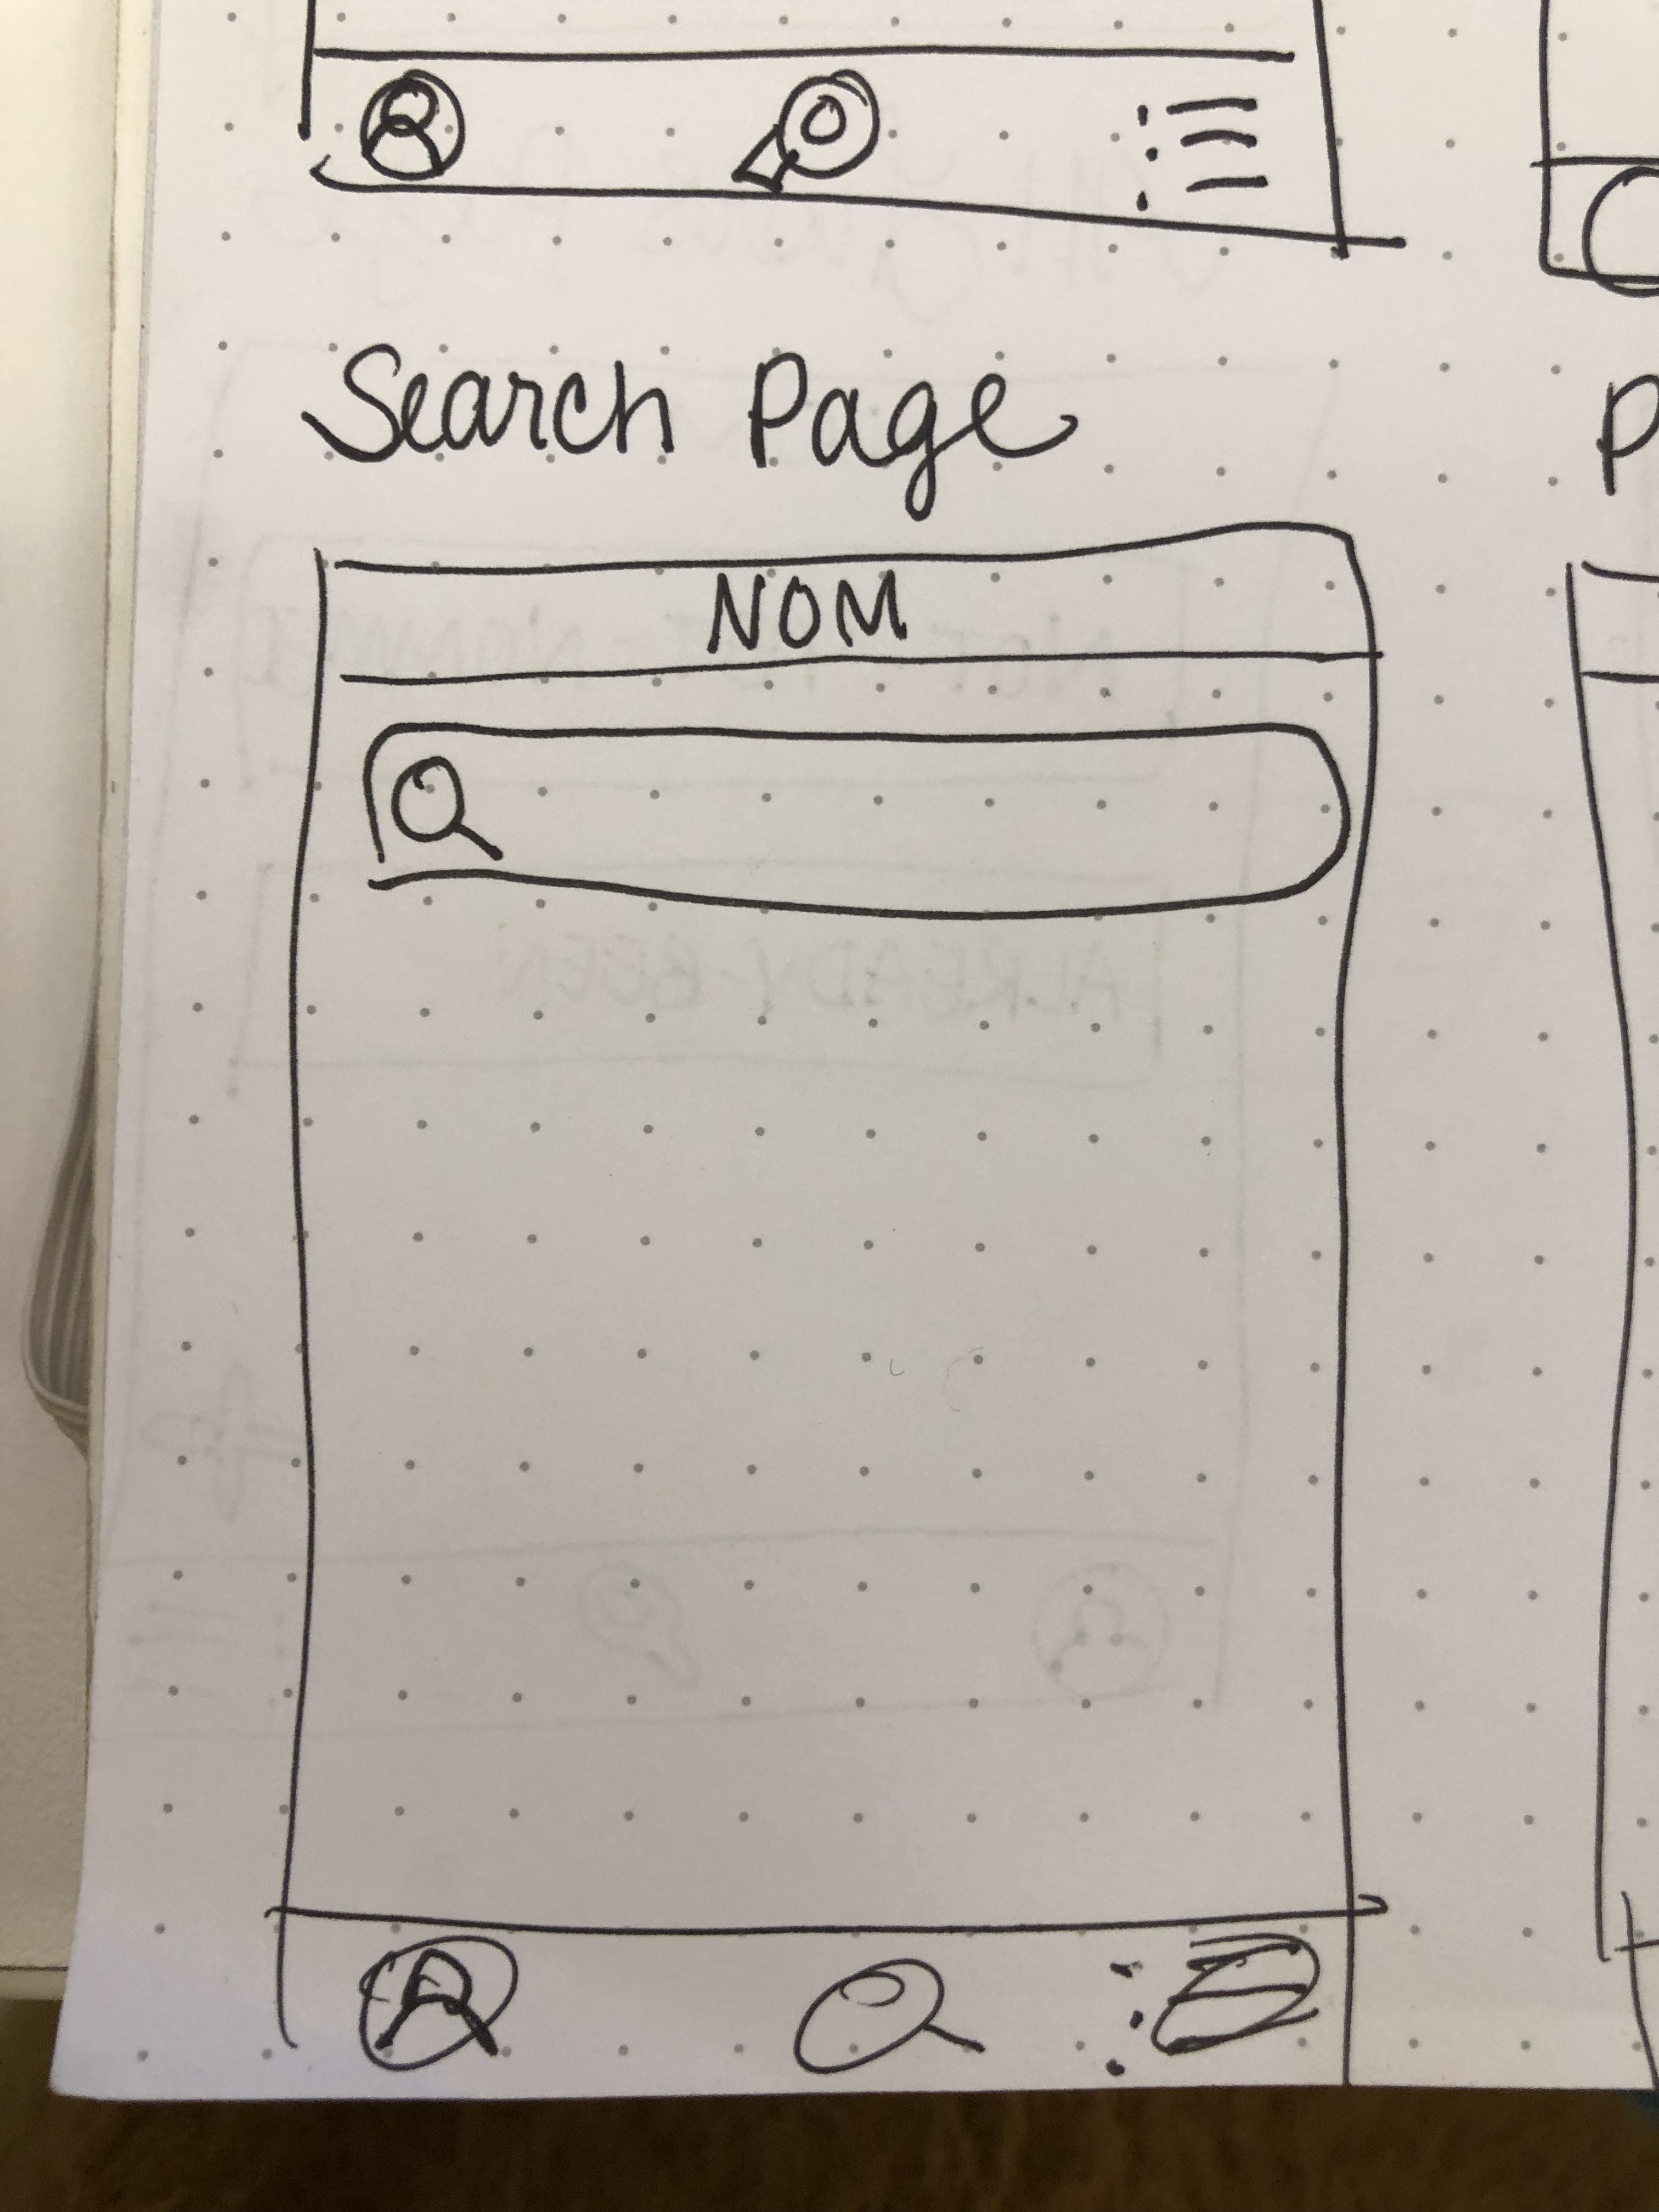 Search Page
P
NOM